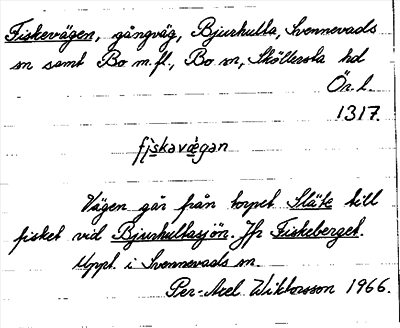 Fiskevägen, gångväg, Bjurhulta, Svennevads
sn samt Bo m.fl., Bo sn, Sköllersta hd
Ör. l.
1317.
fiskavægan
Vägen går från torpet Släte till
fisket vid Bjurhultasjön. Jfr Fiskeberget.
Uppt. i Svennevads sn.
Per-Axel Wiktorsson 1966.